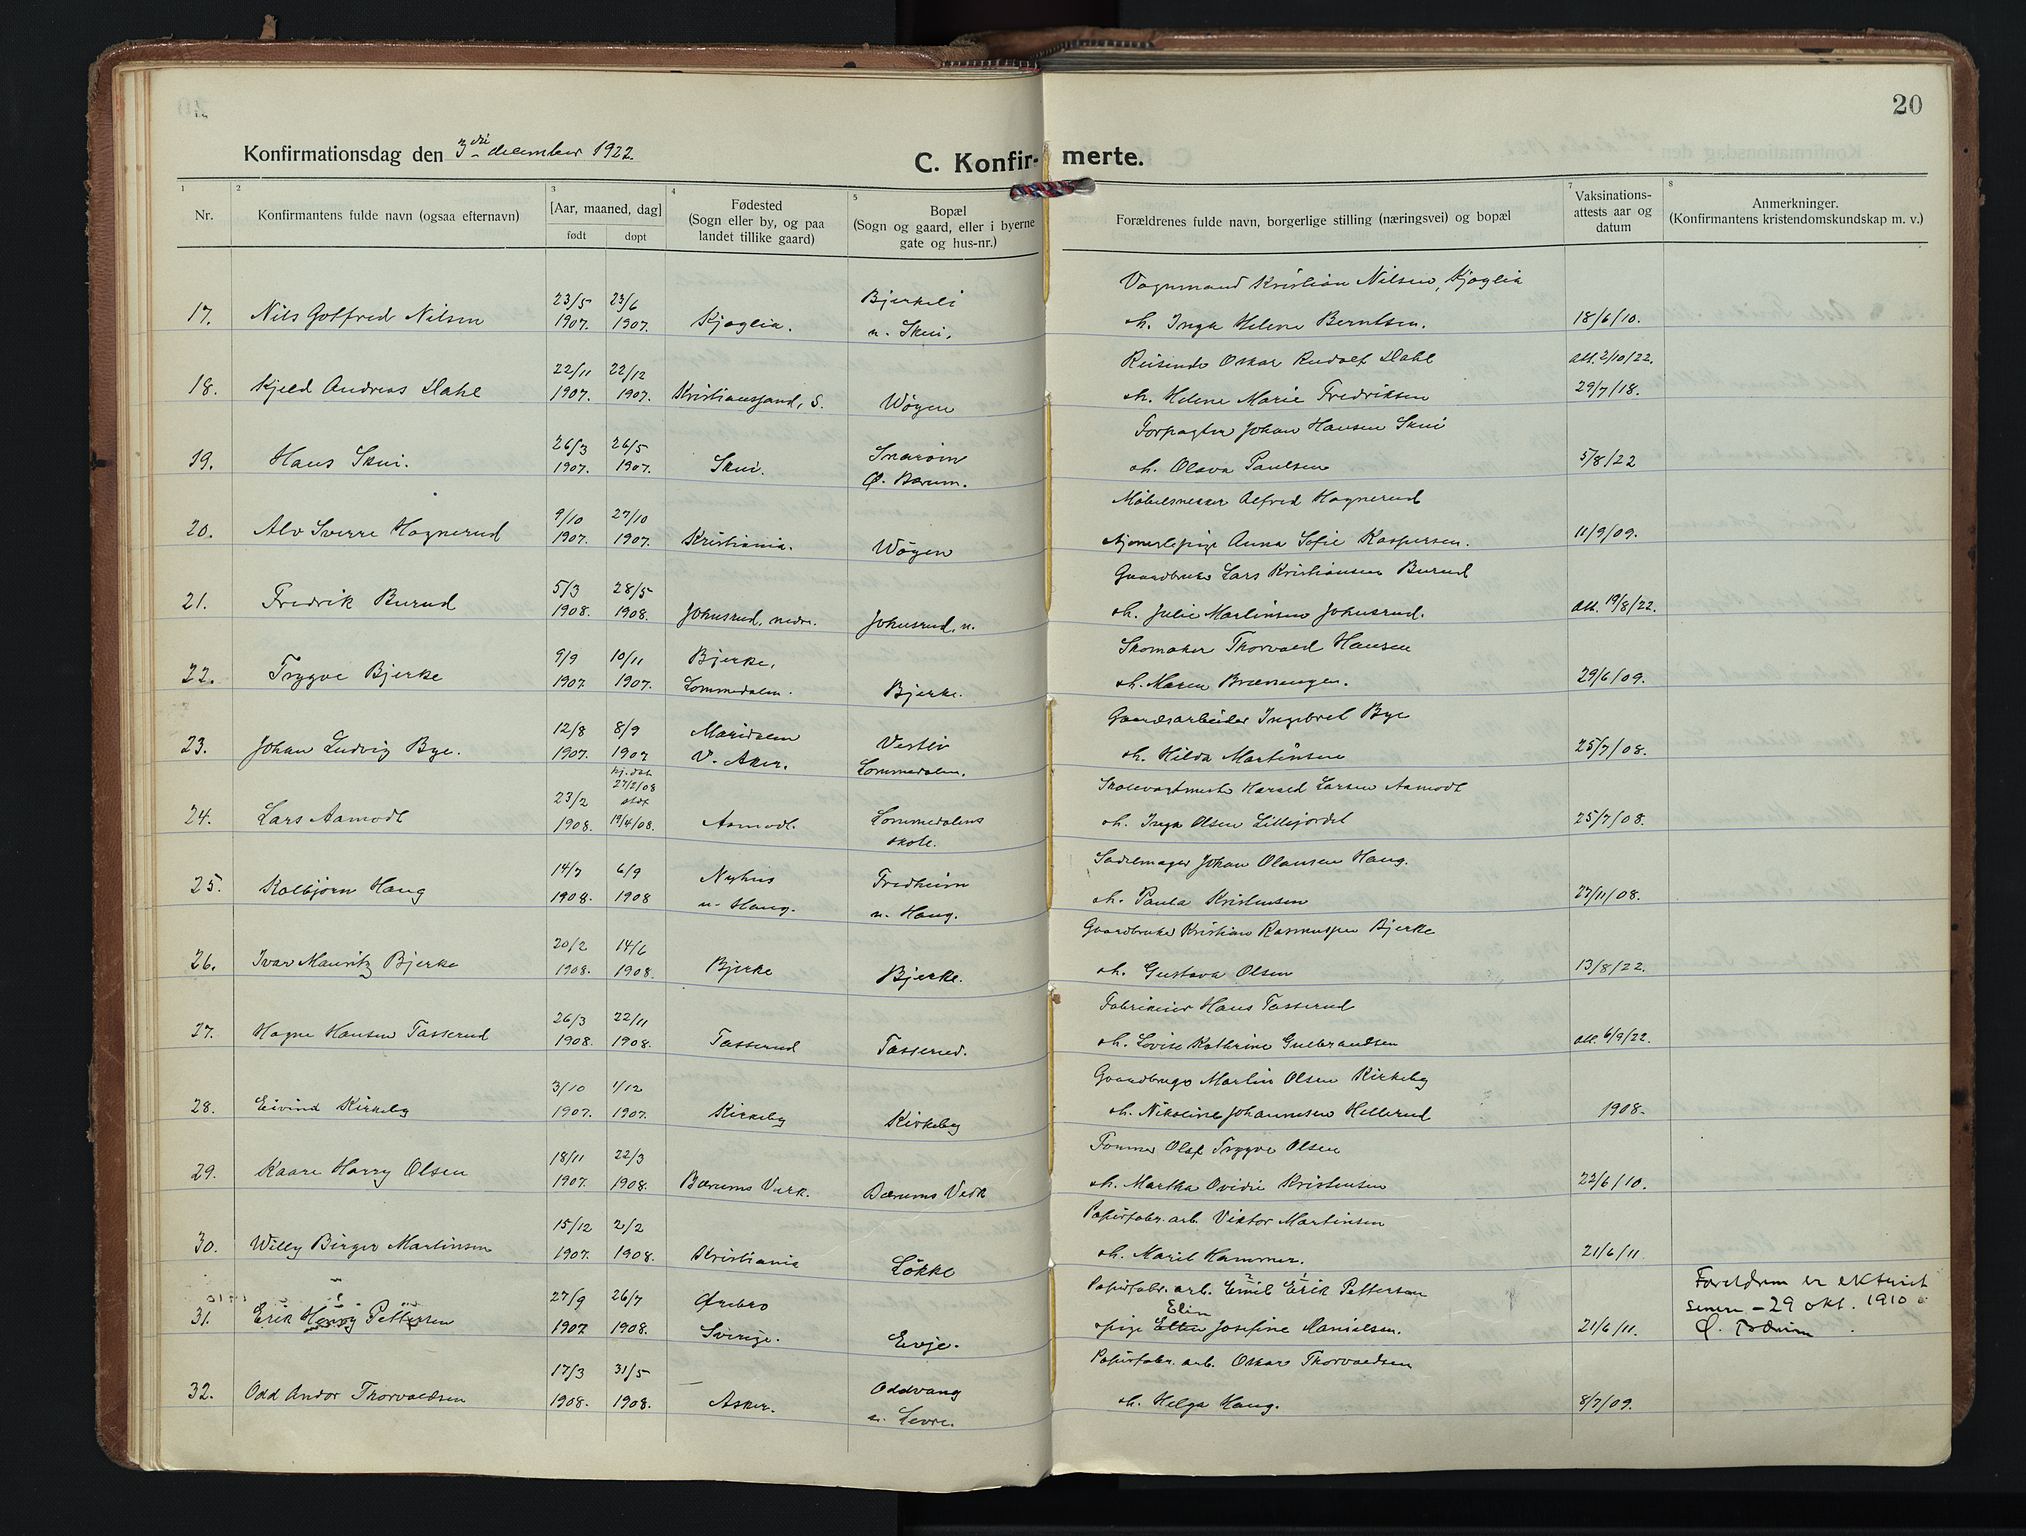 20
Konfirmationsdag den 3die december 1922.
C. Konfirmerte.
1 2 3 4 5 7 8
Nr.
Konfirmantens fulde navn (ogsaa efternavn)
[Aar, maaned, dag]
født døpt
Fødested
(Sogn eller by, og paa
landet tillike gaard)
Bopæl
(Sogn og gaard, eller i byerne
gate og hus-nr.)
Forældrenes fulde navn, borgerlige stilling (næringsvei) og bopæl
Vaksinations-
attests aar og
datum
Anmerkninger.
(Konfirmantens kristendomskundskap m. v.)
23/5 23/6 Bjerkeli Vognmand Kristian Nilsen, Kjaglia
17. Nils Gotfred Nilsen 1907. 1907. Kjaglia. n. Skui. h. Inga Helene Berntsen. 18/6/10.
22/11 22/12 Reisende Oskar Rudolf Dahl att. 2/10/22.
18. Kjeld Andreas Dahl 1907. 1907. Kristianssand, S. Wøyen h. Helene Marie Fredriksen 29/7/18.
26/3 26/5 Snarøin Forpagter Johan Hansen Skui
19. Hans Skui. 1907. 1907. Skui. Ø. Bærum. h. Olava Paulsen 5/8/22
9/10 27/10 Møbelsnekker Alfred Hagnerud
20. Alv Sverre Hagnerud 1907. 1907. Kristiania. Wøyen Anna Sofie Kaspersen. 11/9/09.
5/3 28/5 Gaardbruker Lars Kristiansen Burud
21. Fredrik Burud 1908. 1908. Johnsrud, nedre. Johnsrud, n. h. Julie Martinsen Johnsrud. att. 19/8/22.
9/9 10/11 Bjerke, Skomaker Thorvald Hansen
22. Trygve Bjerke 1907. 1907. Lommedalen. Bjerke. h. Maren Brænengen. 29/6/09.
12/8 8/9 Maridalen Vestli Gaardsarbeider Ingebret Bye
23. Johan Ludvig Bye. 1907. 1907 V. Aker. Lommedalen. h. Hilda Martinsen 25/7/08.
hj.døt
27/2/08
23/2 stdf. Skolevagtmester Harald Larsen Aamodt
24. Lars Aamodt 1908. 19/4/08. Aamodt. Lommedalens skole. h. Inga Olsen Lillejordet 25/7/08.
14/7 6/9 Nyhus Fredheim Sadelmager Johan Olausen Haug.
25. Kolbjørn Haug 1908. 1908 n. Haug. n. Haug. h. Paula Kristensen 27/11/08.
20/2 14/6 Gaardbruker Kristian Rasmussen Bjerke
26. Ivar Mauritz Bjerke 1908. 1908. Bjerke Bjerke. h. Gustava Olsen 13/8/22.
26/3 22/11 Fabrikeier Hans Tasserud
27. Hagne Hansen Tasserud 1908. 1908. Tasserud Tasserud. h. Lovise Kathrine Gulbrandsen att. 6/9/22.
3/10 1/12 Gaardbruger Martin Olsen Kirkeby
28. Eivind Kirkeby 1907. 1907. Kirkeby Kirkeby h. Nikoline Johannesen Hellerud 1908.
18/11 22/3 Former Olaf Trygve Olsen
29. Kaare Harry Olsen 1907. 1908. Bærums Verk. Bærums Verk h. Martha Ovidie Kristensen 22/6/10.
15/12 2/2 Papirfabr. arb. Viktor Martinsen
30. Willy Birger Martinsen 1907. 1908. Kristiania Løkke h. Marit Hammer. 21/6/11.
27/9 26/7 Ørebro Papirfabr. arb. Emil Erik Pettersen Foreldren er ektviet
31. Erik Henry Pettersen 1907 1908. Sverige. Evje. pige Ellen Elin Josefine Danielsen. 21/6/11. senere – 29 okt. 1910 i
Ø. Bærum.
17/3 31/5 Oddvang Papirfabr. arb. Oskar Thorvaldsen
32. Odd Andor Thorvaldsen 1908. 1908. Asker. n. Levre. h. Helga Haug. 8/7/09.